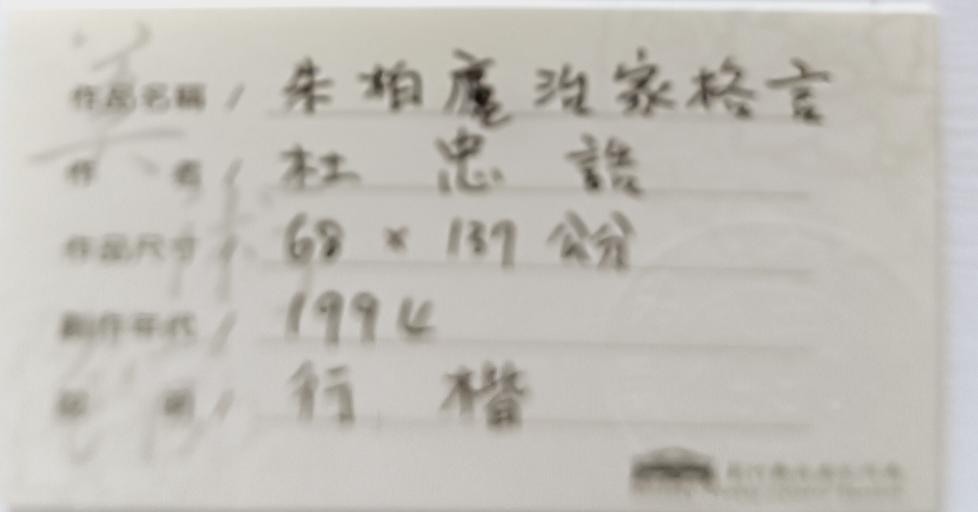 作品名稱 / 朱柏廬治家格言
作者 / 杜忠誥
作品尺寸 / 68 x 137 公分
創作年代 / 1994
行楷